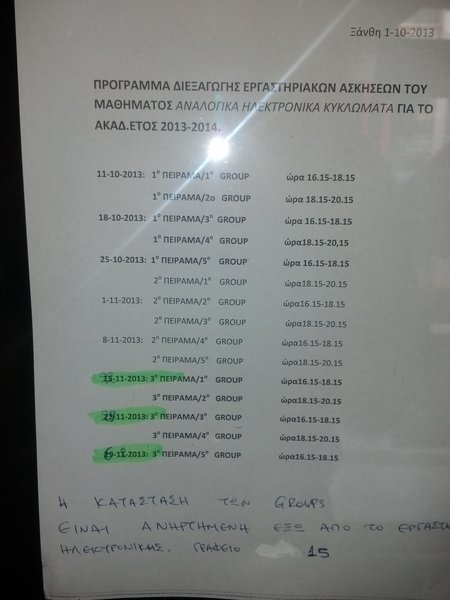 Ξάνθη 1-10-2013
ΠΡΟΓΡΑΜΜΑ ΔΙΕΞΑΓΩΓΗΣ ΕΡΓΑΣΤΗΡΙΑΚΩΝ ΑΣΚΗΣΕΩΝ ΤΟΥ
ΜΑΘΗΜΑΤΟΣ ΑΝΑΛΟΓΙΚΑ ΗΛΕΚΤΡΟΝΙΚΑ ΚΥΚΛΩΜΑΤΑ ΓΙΑ ΤΟ
ΑΚΑΔ.ΕΤΟΣ 2013-2014.
11-10-2013: 1º ΠΕΙΡΑΜΑ/1º GROUP ώρα 16.15-18.15
1º ΠΕΙΡΑΜΑ/2ο GROUP ώρα 18.15-20.15
18-10-2013: 1º ΠΕΙΡΑΜΑ/3º GROUP ώρα 16.15-18.15
1º ΠΕΙΡΑΜΑ/4º GROUP ώρα18.15-20,15
25-10-2013: 1º ΠΕΙΡΑΜΑ/5º GROUP ώρα 16.15-18.15
2º ΠΕΙΡΑΜΑ/1º GROUP ώρα18.15-20.15
1-11-2013: 2º ΠΕΙΡΑΜΑ/2º GROUP ώρα16.15-18.15
2º ΠΕΙΡΑΜΑ/3º GROUP ώρα18.15-20.15
8-11-2013: 2º ΠΕΙΡΑΜΑ/4º GROUP ώρα16.15-18.15
2º ΠΕΙΡΑΜΑ/5º GROUP ώρα18.15-20.15
15-11-2013: 3º ΠΕΙΡΑΜΑ/1º GROUP ώρα16.15-18.15
3º ΠΕΙΡΑΜΑ/2º GROUP ώρα18.15-20.15
22-11-2013: 3º ΠΕΙΡΑΜΑ/3º GROUP ώρα16.15-18.15
3º ΠΕΙΡΑΜΑ/4º GROUP ώρα18.15-20.15
29-11-2013: 3º ΠΕΙΡΑΜΑ/5º GROUP ώρα16.15-18.15
Η ΚΑΤΑΣΤΑΣΗ ΤΩΝ GROUPS
ΕΙΝΑΙ ΑΝΗΡΤΗΜΕΝΗ ΕΞΩ ΑΠΟ ΤΟ ΕΡΓΑΣΤ
ΗΛΕΚΤΡΟΝΙΚΗΣ. ΓΡΑΦΕΙΟ 15